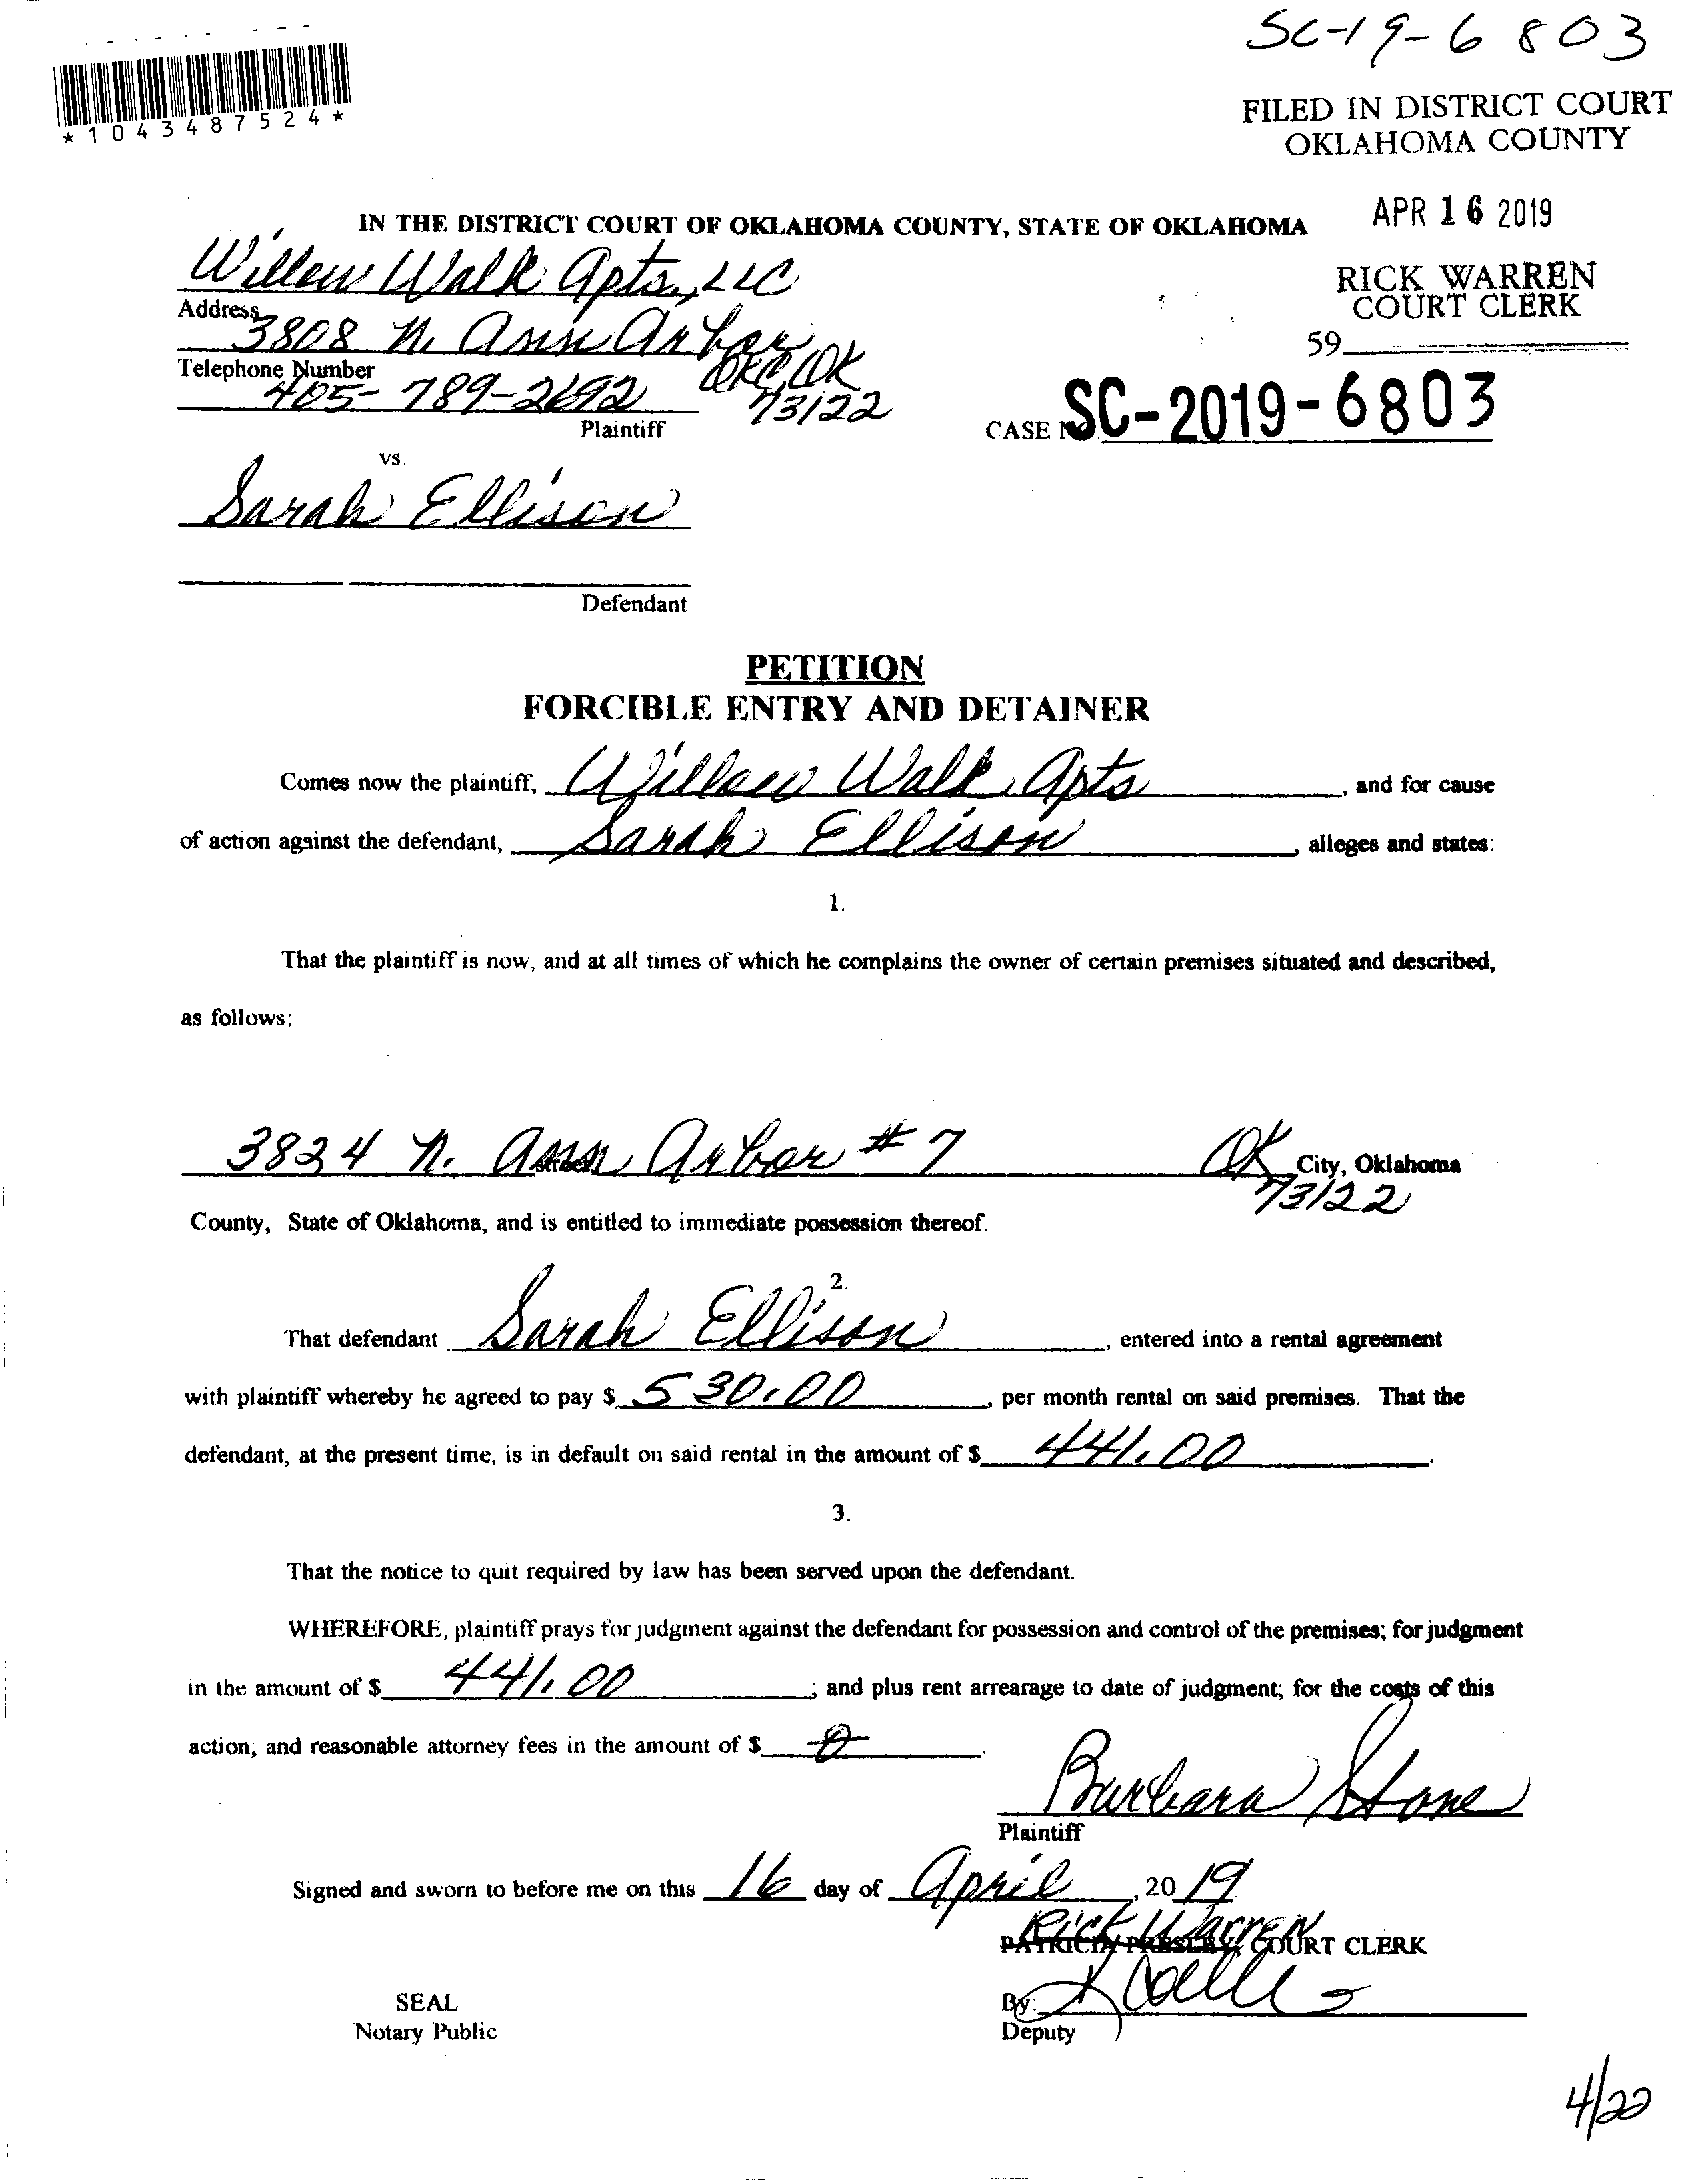 SC-19-6803
*1043487524*
FILED IN DISTRICT COURT
OKLAHOMA COUNTY
APR 16 2019
RICK WARREN
COURT CLERK
59
IN THE DISTRICT COURT OF OKLAHOMA COUNTY, STATE OF OKLAHOMA
Willow Walk Apts, LLC
Address
3808 N. Ann Arbor
OKC, OK
73122
Telephone Number
405-789-2692
Plaintiff
CASE NO SC-2019-6803
vs.
Sarah Ellison
Defendant
PETITION
FORCIBLE ENTRY AND DETAINER
Comes now the plaintiff, Willow Walk Apts, and for cause
of action against the defendant, Sarah Ellison, alleges and states:
1.
That the plaintiff is now, and at all times of which he complains the owner of certain premises situated and described,
as follows:
3824 N. Ann Arbor #7 OK City, Oklahoma
73122
County, State of Oklahoma, and is entitled to immediate possession thereof.
2.
That defendant Sarah Ellison, entered into a rental agreement
with plaintiff whereby he agreed to pay $ 530.00, per month rental on said premises. That the
defendant, at the present time, is in default on said rental in the amount of $ 441.00.
3.
That the notice to quit required by law has been served upon the defendant.
WHEREFORE, plaintiff prays for judgment against the defendant for possession and control of the premises; for judgment
in the amount of $ 441.00; and plus rent arrearage to date of judgment; for the costs of this
action, and reasonable attorney fees in the amount of $ 0.
Barbara Stone
Plaintiff
Signed and sworn to before me on this 16 day of April, 20 19
Rick Warren
PATRICIA PRESLEY, COURT CLERK
SEAL
Notary Public
By:
Deputy
4/22